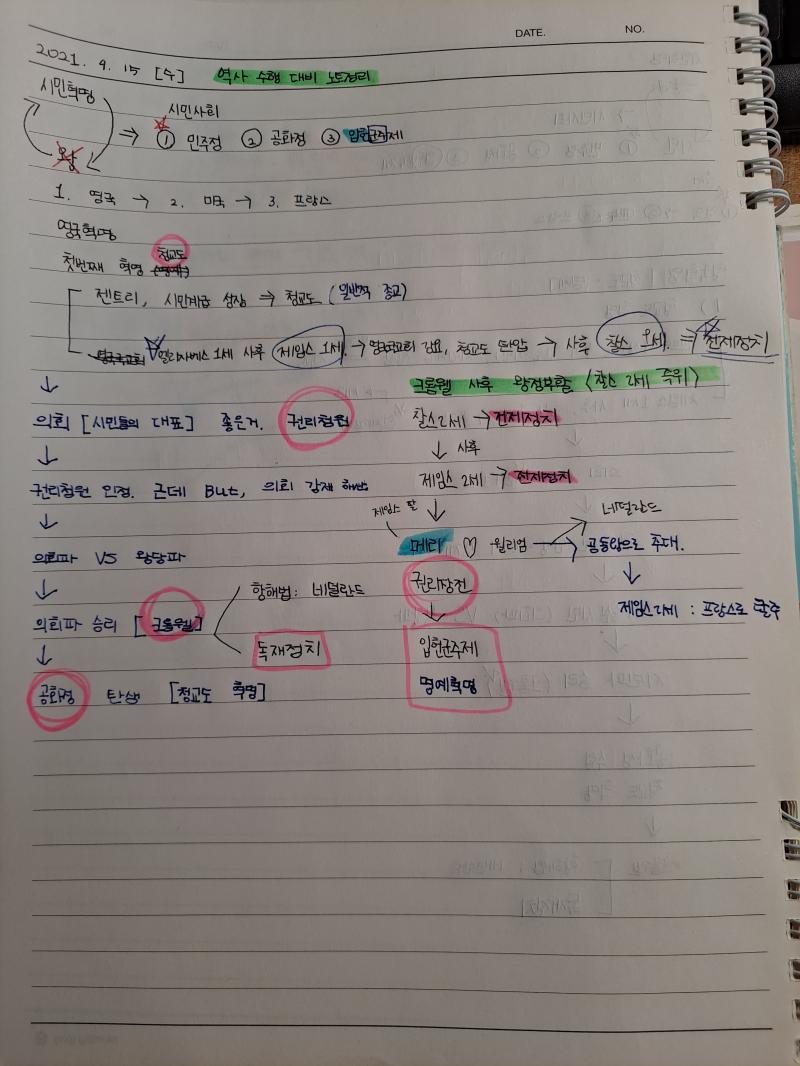 DATE. NO.
2021. 9. 15 [수] 역사 수행 대비 노트정리
시민혁명
왕
시민사회
⇒ ① 민주정 ② 공화정 ③ 입헌군주제
1. 영국 → 2. 미국 → 3. 프랑스
영국혁명
청교도
첫번째 혁명 (명예)
젠트리, 시민계급 성장 → 청교도 (일반적 종교)
영국국교회 엘리자베스 1세 사후 제임스 1세. → 영국국교회 강요, 청교도 탄압 → 사후 찰스 1세. ⇒ 전제정치
↓
의회 [시민들의 대표] 좋은거. 권리청원
↓
권리청원 인정. 근데 But, 의회 강제 해산
↓
의회파 VS 왕당파
↓
의회파 승리 [크롬웰]
항해법: 네덜란드
독재정치
↓
공화정 탄생 [청교도 혁명]
크롬웰 사후 왕정복활 (찰스 2세 즉위)
찰스2세 → 전제정치
↓ 사후
제임스 2세 → 전제정치
↓
제임스 딸
메리 ♡ 윌리엄 → 네덜란드
→ 공동왕으로 추대.
↓
제임스2세 : 프랑스로 도주
권리장전
↓
입헌군주제
명예혁명